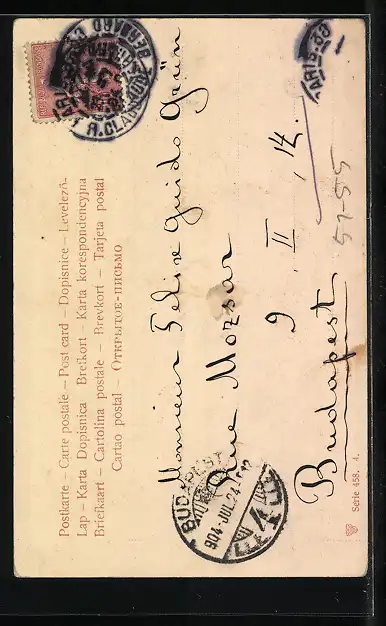 Postkarte – Carte postale – Post card – Dopisnice – Levelező-
Lap – Karta Dopisnica Brefkort – Karta korespondencyjna
Briefkaart – Cartolina postale – Brevkort – Tarjeta postal
Cartao postal – Открытое-письмо
Monsieur Felire Guido Grün
Rue Mozsar
9 II, 14.
Budapest
51-55
BUDAPEST
904 JUN. 24
PARIS-23
R. CLAUDE BERNARD
Serie 458. 4.